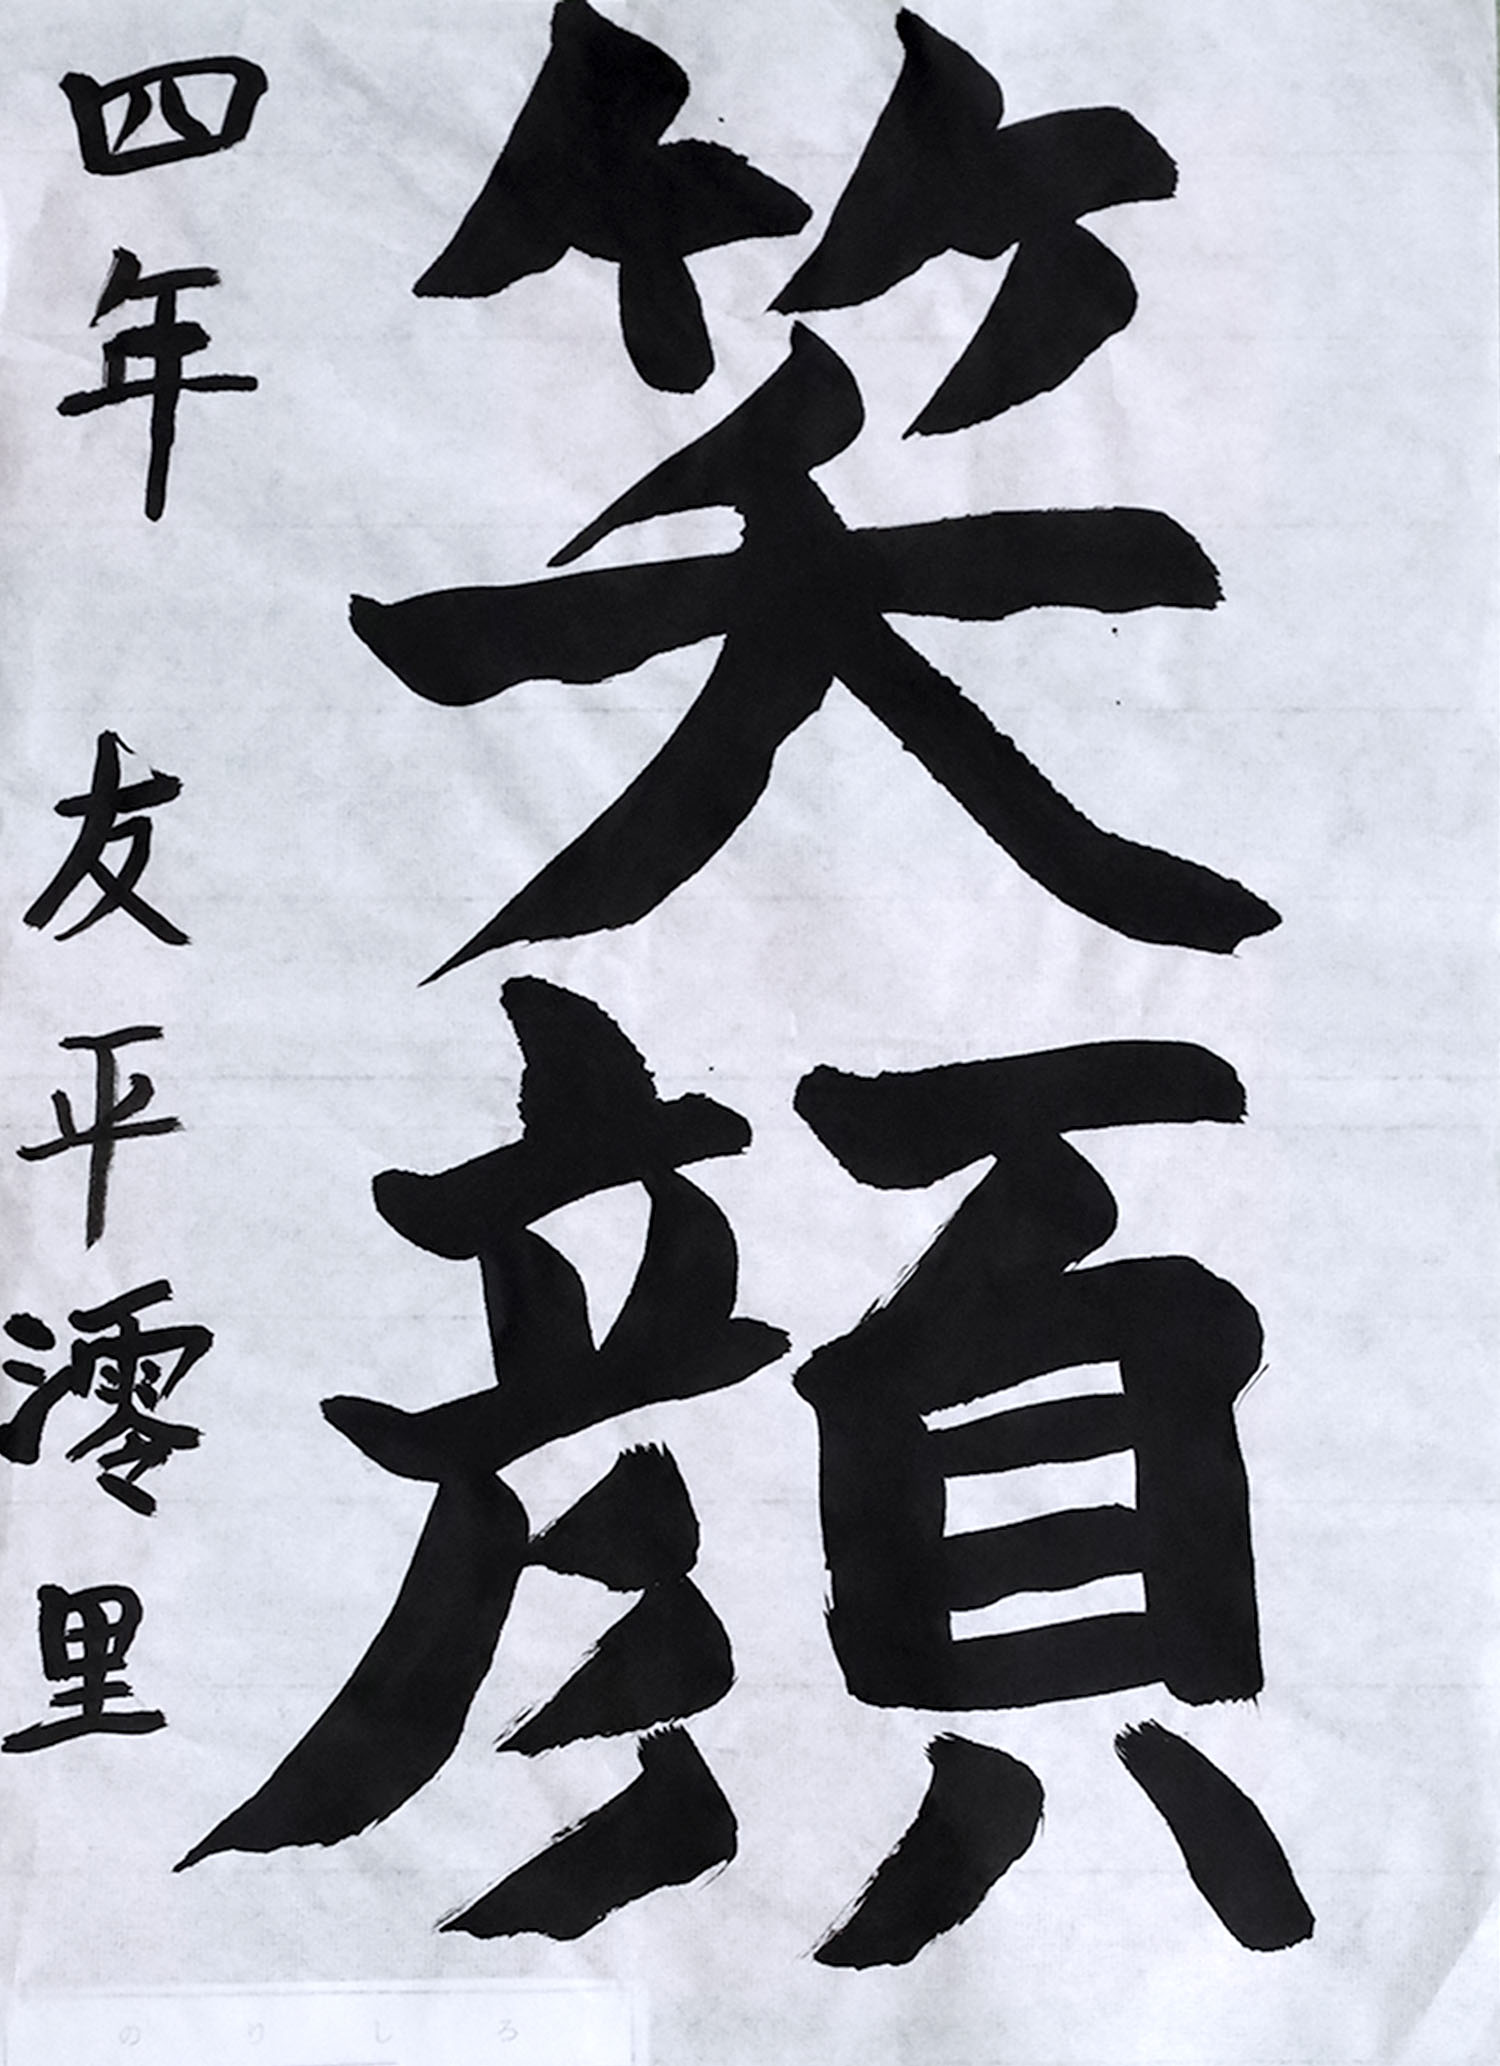 笑顔
四年 友平澪里
のりしろ